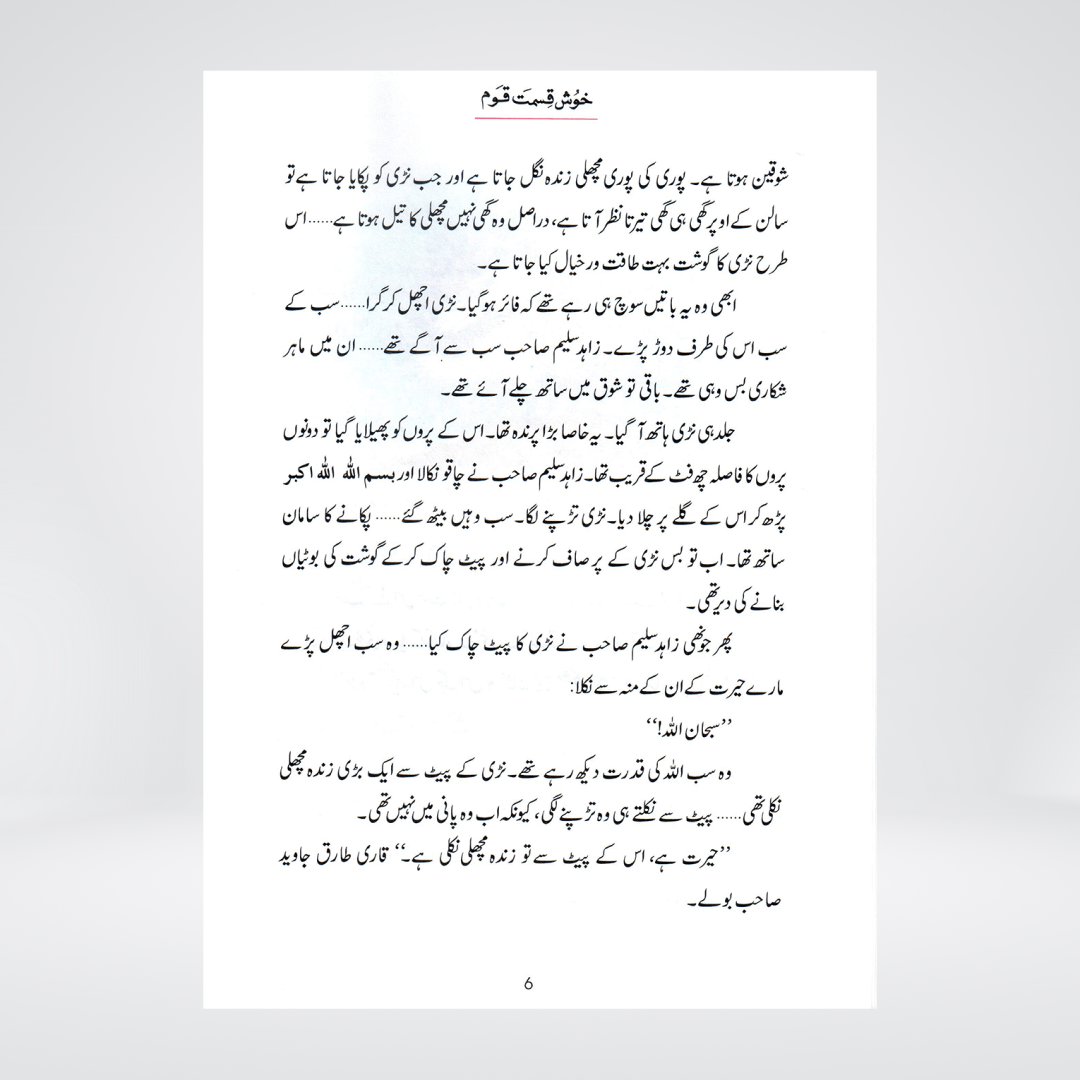 خوش قسمت قوم
شوقین ہوتا ہے۔ پوری کی پوری مچھلی زندہ نگل جاتا ہے اور جب نڑی کو پکایا جاتا ہے تو
سالن کے اوپر گھی ہی گھی تیرتا نظر آتا ہے، دراصل وہ گھی نہیں مچھلی کا تیل ہوتا ہے......اس
طرح نڑی کا گوشت بہت طاقت ور خیال کیا جاتا ہے۔
ابھی وہ یہ باتیں سوچ ہی رہے تھے کہ فائر ہوگیا۔ نڑی اچھل کر گرا......سب کے
سب اس کی طرف دوڑ پڑے۔ زاہد سلیم صاحب سب سے آگے تھے...... ان میں ماہر
شکاری بس وہی تھے۔ باقی تو شوق میں ساتھ چلے آئے تھے۔
جلد ہی نڑی ہاتھ آ گیا۔ یہ خاصا بڑا پرندہ تھا۔ اس کے پروں کو پھیلایا گیا تو دونوں
پروں کا فاصلہ چھ فٹ کے قریب تھا۔ زاہد سلیم صاحب نے چاقو نکالا اور بسم اللہ اللہ اکبر
پڑھ کر اس کے گلے پر چلا دیا۔ نڑی تڑپنے لگا۔ سب وہیں بیٹھ گئے...... پکانے کا سامان
ساتھ تھا۔ اب تو بس نڑی کے پر صاف کرنے اور پیٹ چاک کرکے گوشت کی بوٹیاں
بنانے کی دیر تھی۔
پھر جونہی زاہد سلیم صاحب نے نڑی کا پیٹ چاک کیا...... وہ سب اچھل پڑے
مارے حیرت کے ان کے منہ سے نکلا:
’’سبحان اللہ!‘‘
وہ سب اللہ کی قدرت دیکھ رہے تھے۔ نڑی کے پیٹ سے ایک بڑی زندہ مچھلی
نکلی تھی...... پیٹ سے نکلتے ہی وہ تڑپنے لگی، کیونکہ اب وہ پانی میں نہیں تھی۔
’’حیرت ہے، اس کے پیٹ سے تو زندہ مچھلی نکلی ہے۔‘‘ قاری طارق جاوید
صاحب بولے۔
6